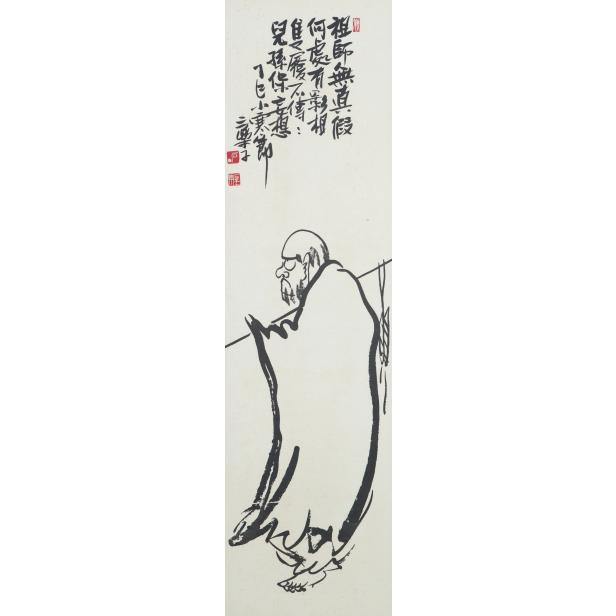 祖師無真假
何處有影相
隻履不傳〻
兒孫保妄想
丁巳小寒節
三樂子